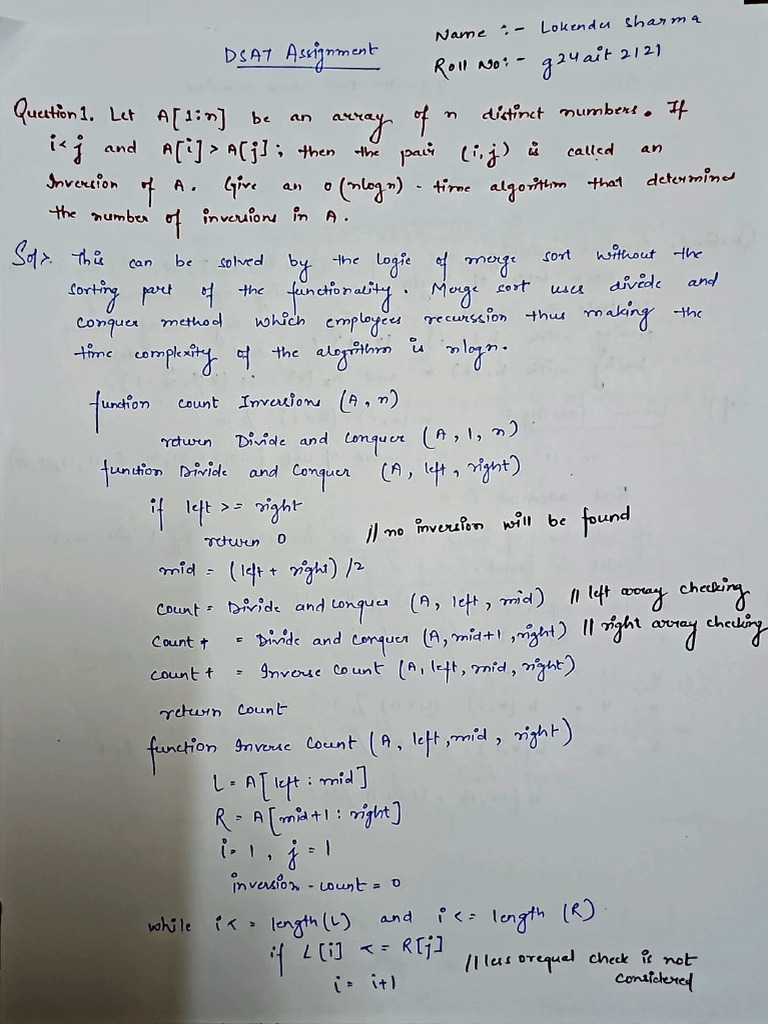 Name :- Lokendu Sharma
DSA7 Assignment
Roll No:- g24ait2121
Question 1. Let A[1:n] be an array of n distinct numbers. If
i<j and A[i]>A[j]; then the pair (i,j) is called an
Inversion of A. Give an o(nlogn)-time algorithm that determind
the number of inversions in A.
Sol>. This can be solved by the logic of merge sort without the
sorting part of the functionality. Merge sort uses divide and
conquer method which employees recurssion thus making the
time complexity of the alogrithm is nlogn.
function count Inversions (A, n)
return Divide and Conquer (A, 1, n)
function Divide and Conquer (A, left, right)
if left >= right
return 0 // no inversion will be found
mid = (left + right) /2
count = Divide and conquer (A, left, mid) // left array checking
Count + = Divide and Conquer (A, mid+1, right) // right array checking
count + = Inverse Count (A, left, mid, right)
return count
function Inverse Count (A, left, mid, right)
L = A[left : mid]
R = A[mid+1 : right]
i = 1, j = 1
inversion - count = 0
while i < = length(L) and i <= length (R)
if L[i] <= R[j] // less orequal check is not
i = i+1 considered